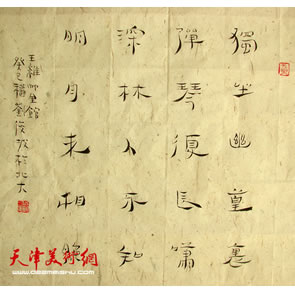 獨坐幽篁裏
彈琴復長嘯
深林人不知
明月来相照
王維竹里館
癸巳穐劉俊坡於北大
天津美術網